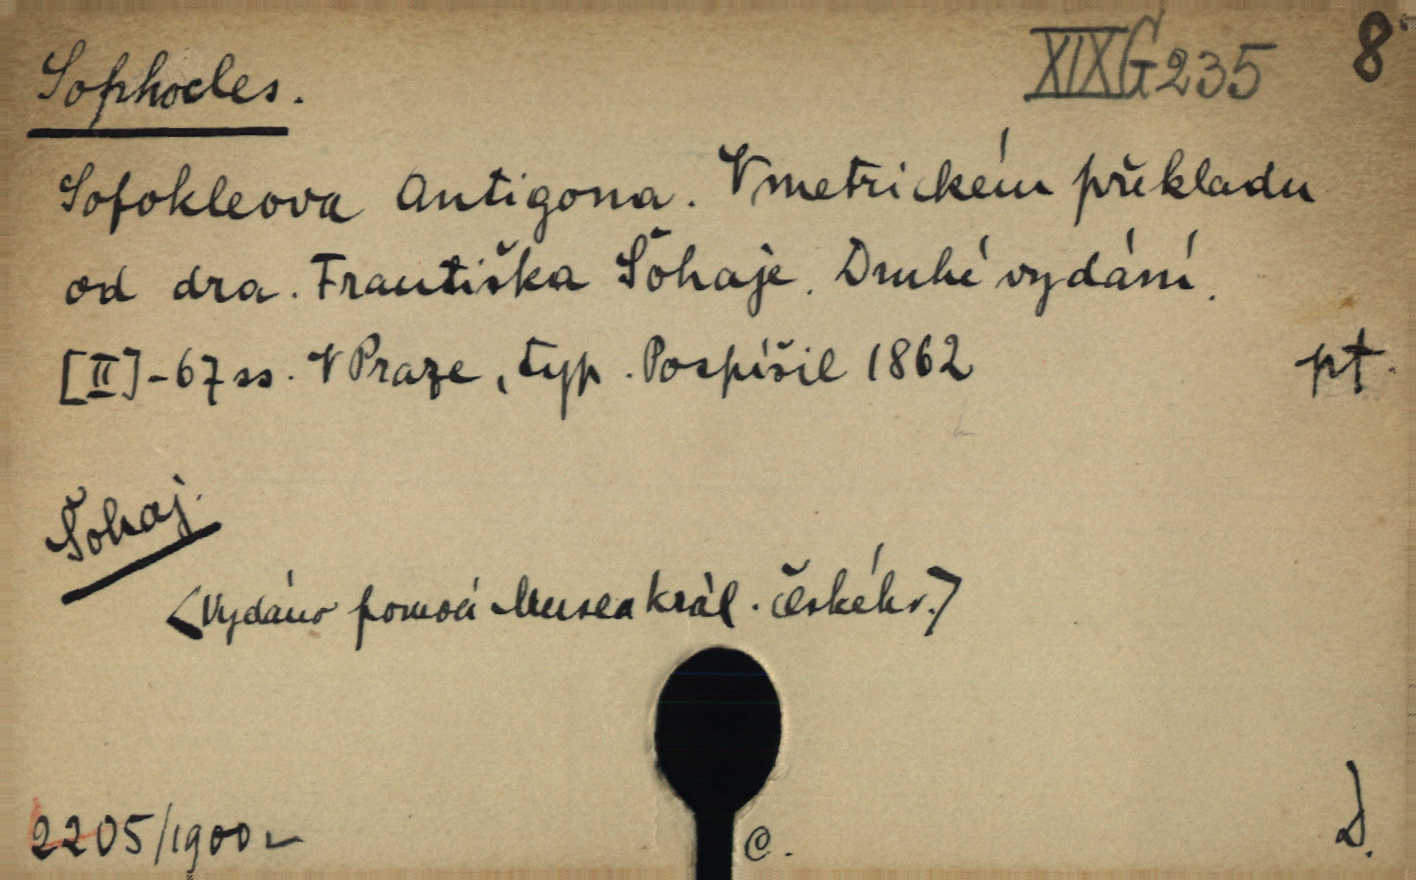 Sophocles. XIXG235 8°
Sofokleova Antigona. V metrickém překladu
od dra. Františka Šohaje. Druhé vydání.
[II]-67 ss. V Praze, typ. Pospíšil 1862 pt.
Šohaj.
<Vydáno pomocí Musea král. českého.>
2205/1900 C. D.